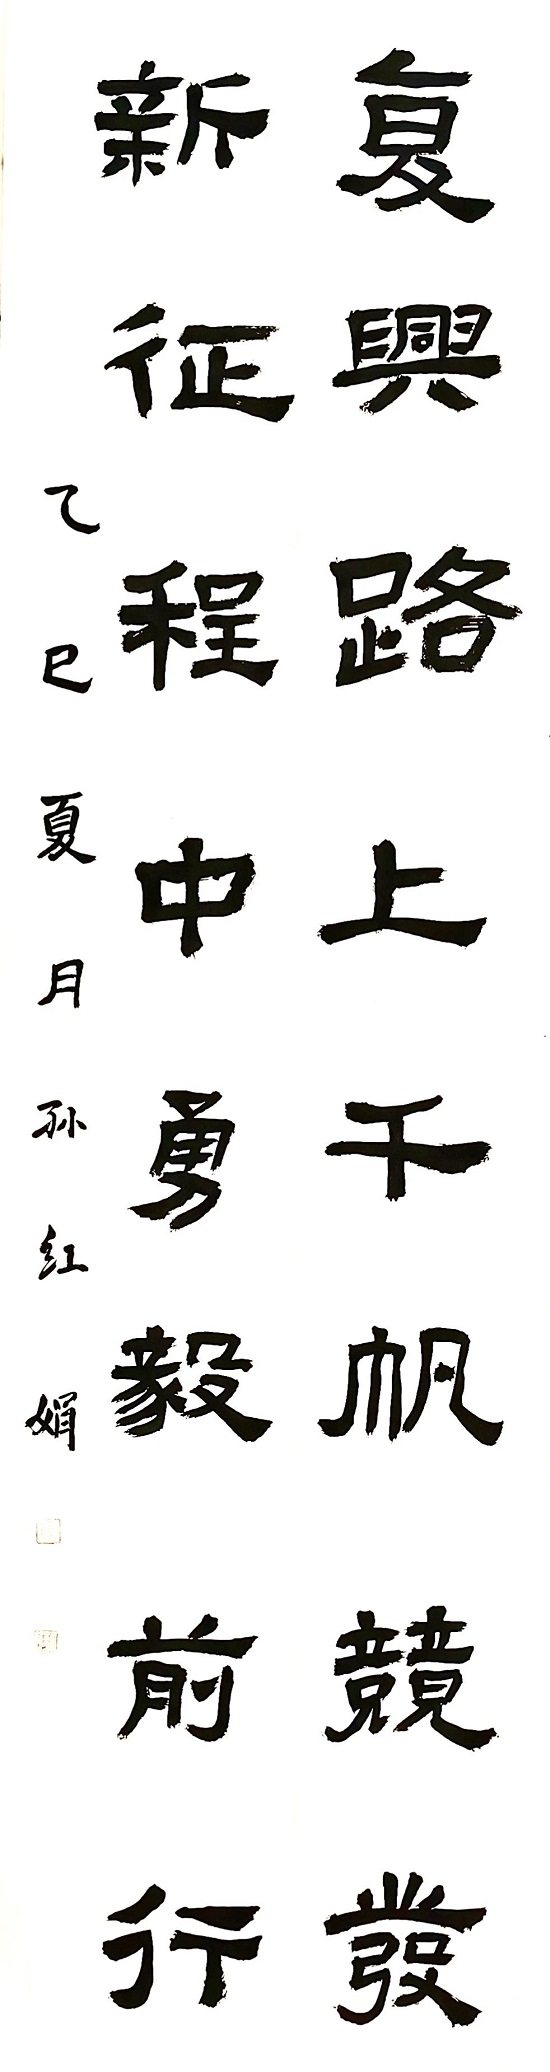 复興路上千帆競發
新征程中勇毅前行
乙巳夏月孙红娟